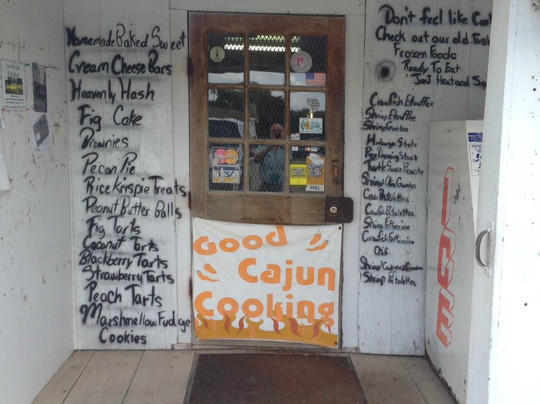 Homemade Baked Sweet
Cream Cheese Bars
Heavenly Hash
Fig Cake
Brownies
Pecan Pie
Rice Krispie Treats
Peanut Butter Balls
Fig Tarts
Coconut Tarts
Blackberry Tarts
Strawberry Tarts
Peach Tarts
Marshmellow Fudge
Cookies
PULL
Good
Cajun
Cooking
Don't feel like
Check out our old
Frozen Foods
Ready To Eat
Just Heat and
Crawfish Etouffee
Shrimp Etouffee
Shrimp Gumbo
Hamburger Steak
Turtle Sauce Piquante
Shrimp Okra Gumbo
Crab Patolettes
Crawfish Patolettes
Shrimp Fettuccine
Crawfish Fettuccine
Chili
Shrimp Patolettes
ICE